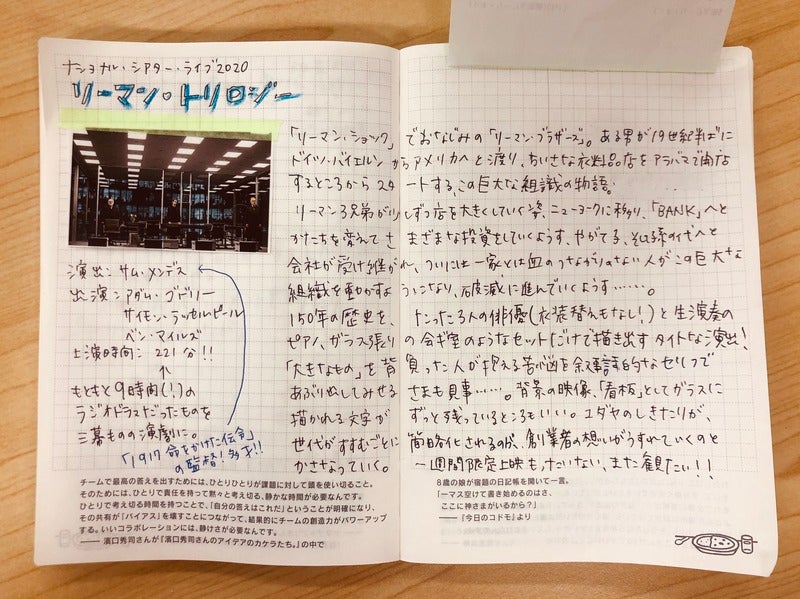 ナショナル・シアター・ライブ2020
リーマン・トリロジー
演出:サム・メンデス
出演:アダム・ゴドリー
サイモン・ラッセルビール
ベン・マイルズ
上演時間:221分!!
↑
もともと9時間(!)の
ラジオドラマだったものを
三幕ものの演劇に。
「1917 命をかけた伝令」
の監督!多才!!
「リーマン・ショック」でおなじみの「リーマン・ブラザーズ」。ある男が19世紀半ばに
ドイツ・バイエルンからアメリカへと渡り、ちいさな衣料品店をアラバマで開店
するところからスタートする、この巨大な組織の物語。
リーマン3兄弟が少しずつ店を大きくしていく姿、ニューヨークに移り、「BANK」へと
かたちを変えてさまざまな投資をしていくようす、やがて、子孫の代へと
会社が受け継がれ、ついには一家とは血のつながりのない人がこの巨大な
組織を動かすようになり、破滅に進んでいくようす……。
150年の歴史を、たった3人の俳優(衣装替えもなし!)と生演奏の
ピアノ、ガラス張りの会議室のようなセットだけで描き出すタイトな演出!
「大きなもの」を背負った人が抱える苦悩を叙事詩的なセリフで
あぶり出ししてみせるさまも見事……。背景の映像、「看板」としてガラスに
描かれる文字がずっと残っているところもいい。ユダヤのしきたりが、
世代がすすむごとに簡略化されるのが、創業者の想いがうすれていくのと
かさなっていく。一週間限定上映もったいない、また観たい!!
チームで最高の答えを出すためには、ひとりひとりが課題に対して頭を使い切ること。
そのためには、ひとりで責任を持って黙々と考え切る、静かな時間が必要なんです。
ひとりで考え切る時間を持つことで、「自分の答えはこれだ」ということが明確になり、
その共有が「バイアス」を壊すことにつながって、結果的にチームの創造力がパワーアップ
する。いいコラボレーションには、静けさが必要なんです。
―― 濱口秀司さんが『濱口秀司さんのアイデアのカケラたち。』の中で
8歳の娘が宿題の日記帳を開いて一言。
「一マス空けて書き始めるのはさ、
ここに神さまがいるから?」
――『今日のコドモ』より